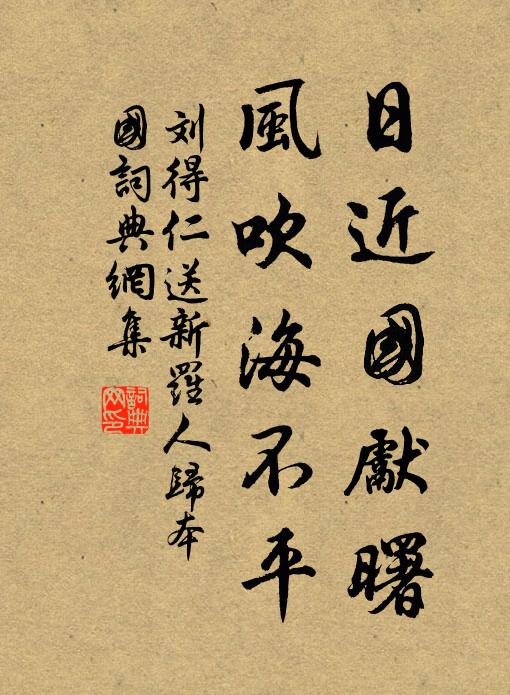 日近國獻曙
風吹海不平
刘得仁送新羅人歸本
國詞典網集
詞典
网印